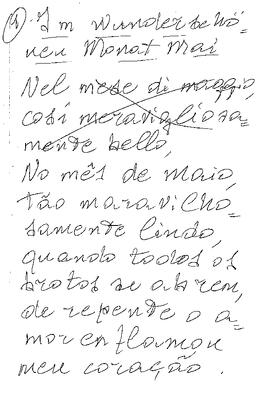 1) Im wunderschö=
nen Monat Mai
Nel mese di maggio,
così meravigliosa=
mente bello,
No mês de maio,
tão maravilho=
samente lindo,
quando todos os
brotos se abrem,
de repente o a=
mor enflamou
meu coração.